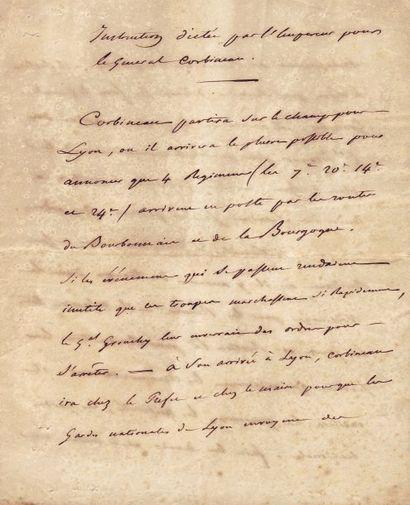 Instruction dictée par l'Empereur pour
le Général Corbineau.
Corbineau partira sur le champ pour
Lyon, ou il arrivera le plus possible pour
annoncer que 4 Regimens (les 7.e 20.e 14.e
et 24.e) arrivent en poste par les routes
du Bourbonnais et de la Bourgogne.
Si les événemens qui se passent rendaient
inutile que ces troupes marchassent si Rapidement,
le G.al Grouchy leur enverrait des ordres pour
s'arreter. — à son arrivée à Lyon, Corbineau
ira chez le Prefet et chez le maire pour que les
Gardes nationales de Lyon envoyent des